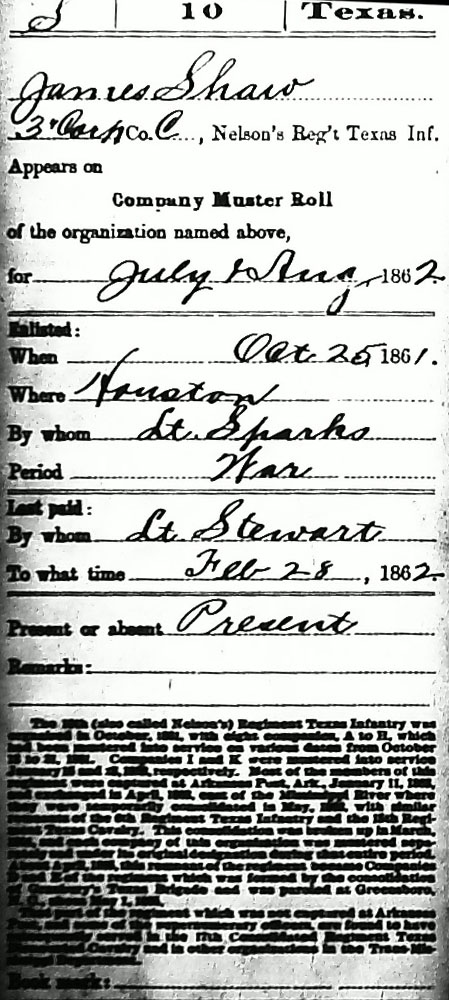 S | 10 | Texas.
James Shaw
3' Corp Co. C, Nelson's Reg't Texas Inf.
Appears on
Company Muster Roll
of the organization named above,
for July & Aug, 1862
Enlisted:
When Oct 25, 1861.
Where Houston
By whom Lt. Sparks
Period War
Last paid:
By whom Lt Stewart
To what time Feb 28, 1862
Present or absent Present
Remarks:
The (also called Nelson's) Regiment Texas Infantry was
organized in October, with eight companies, A to H, which
had been mustered into service on various dates from October
Companies I and K were mustered into service
January respectively. Most of the members of this
regiment were captured at Arkansas Post, Ark., January 11,
and exchanged in April, east of the Mississippi River where
they were temporarily consolidated in May, with similar
of the 6th Regiment Texas Infantry and the 15th Regi-
ment Texas Cavalry. This consolidation was broken up in March,
and each company of this organization was mustered sepa-
rately and under its original designation during that entire period.
this remnant of the regiment became Companies
of the regiment which was formed by the consolidation
of Granbury's Texas Brigade and was paroled at Greensboro,
N. C., about May 1,
That part of the regiment which was not captured at Arkansas
Post, and some of the officers, are found to have
in the 17th Consolidated Regiment Texas
Cavalry and in other organizations in the Trans-Mis-
Book mark: